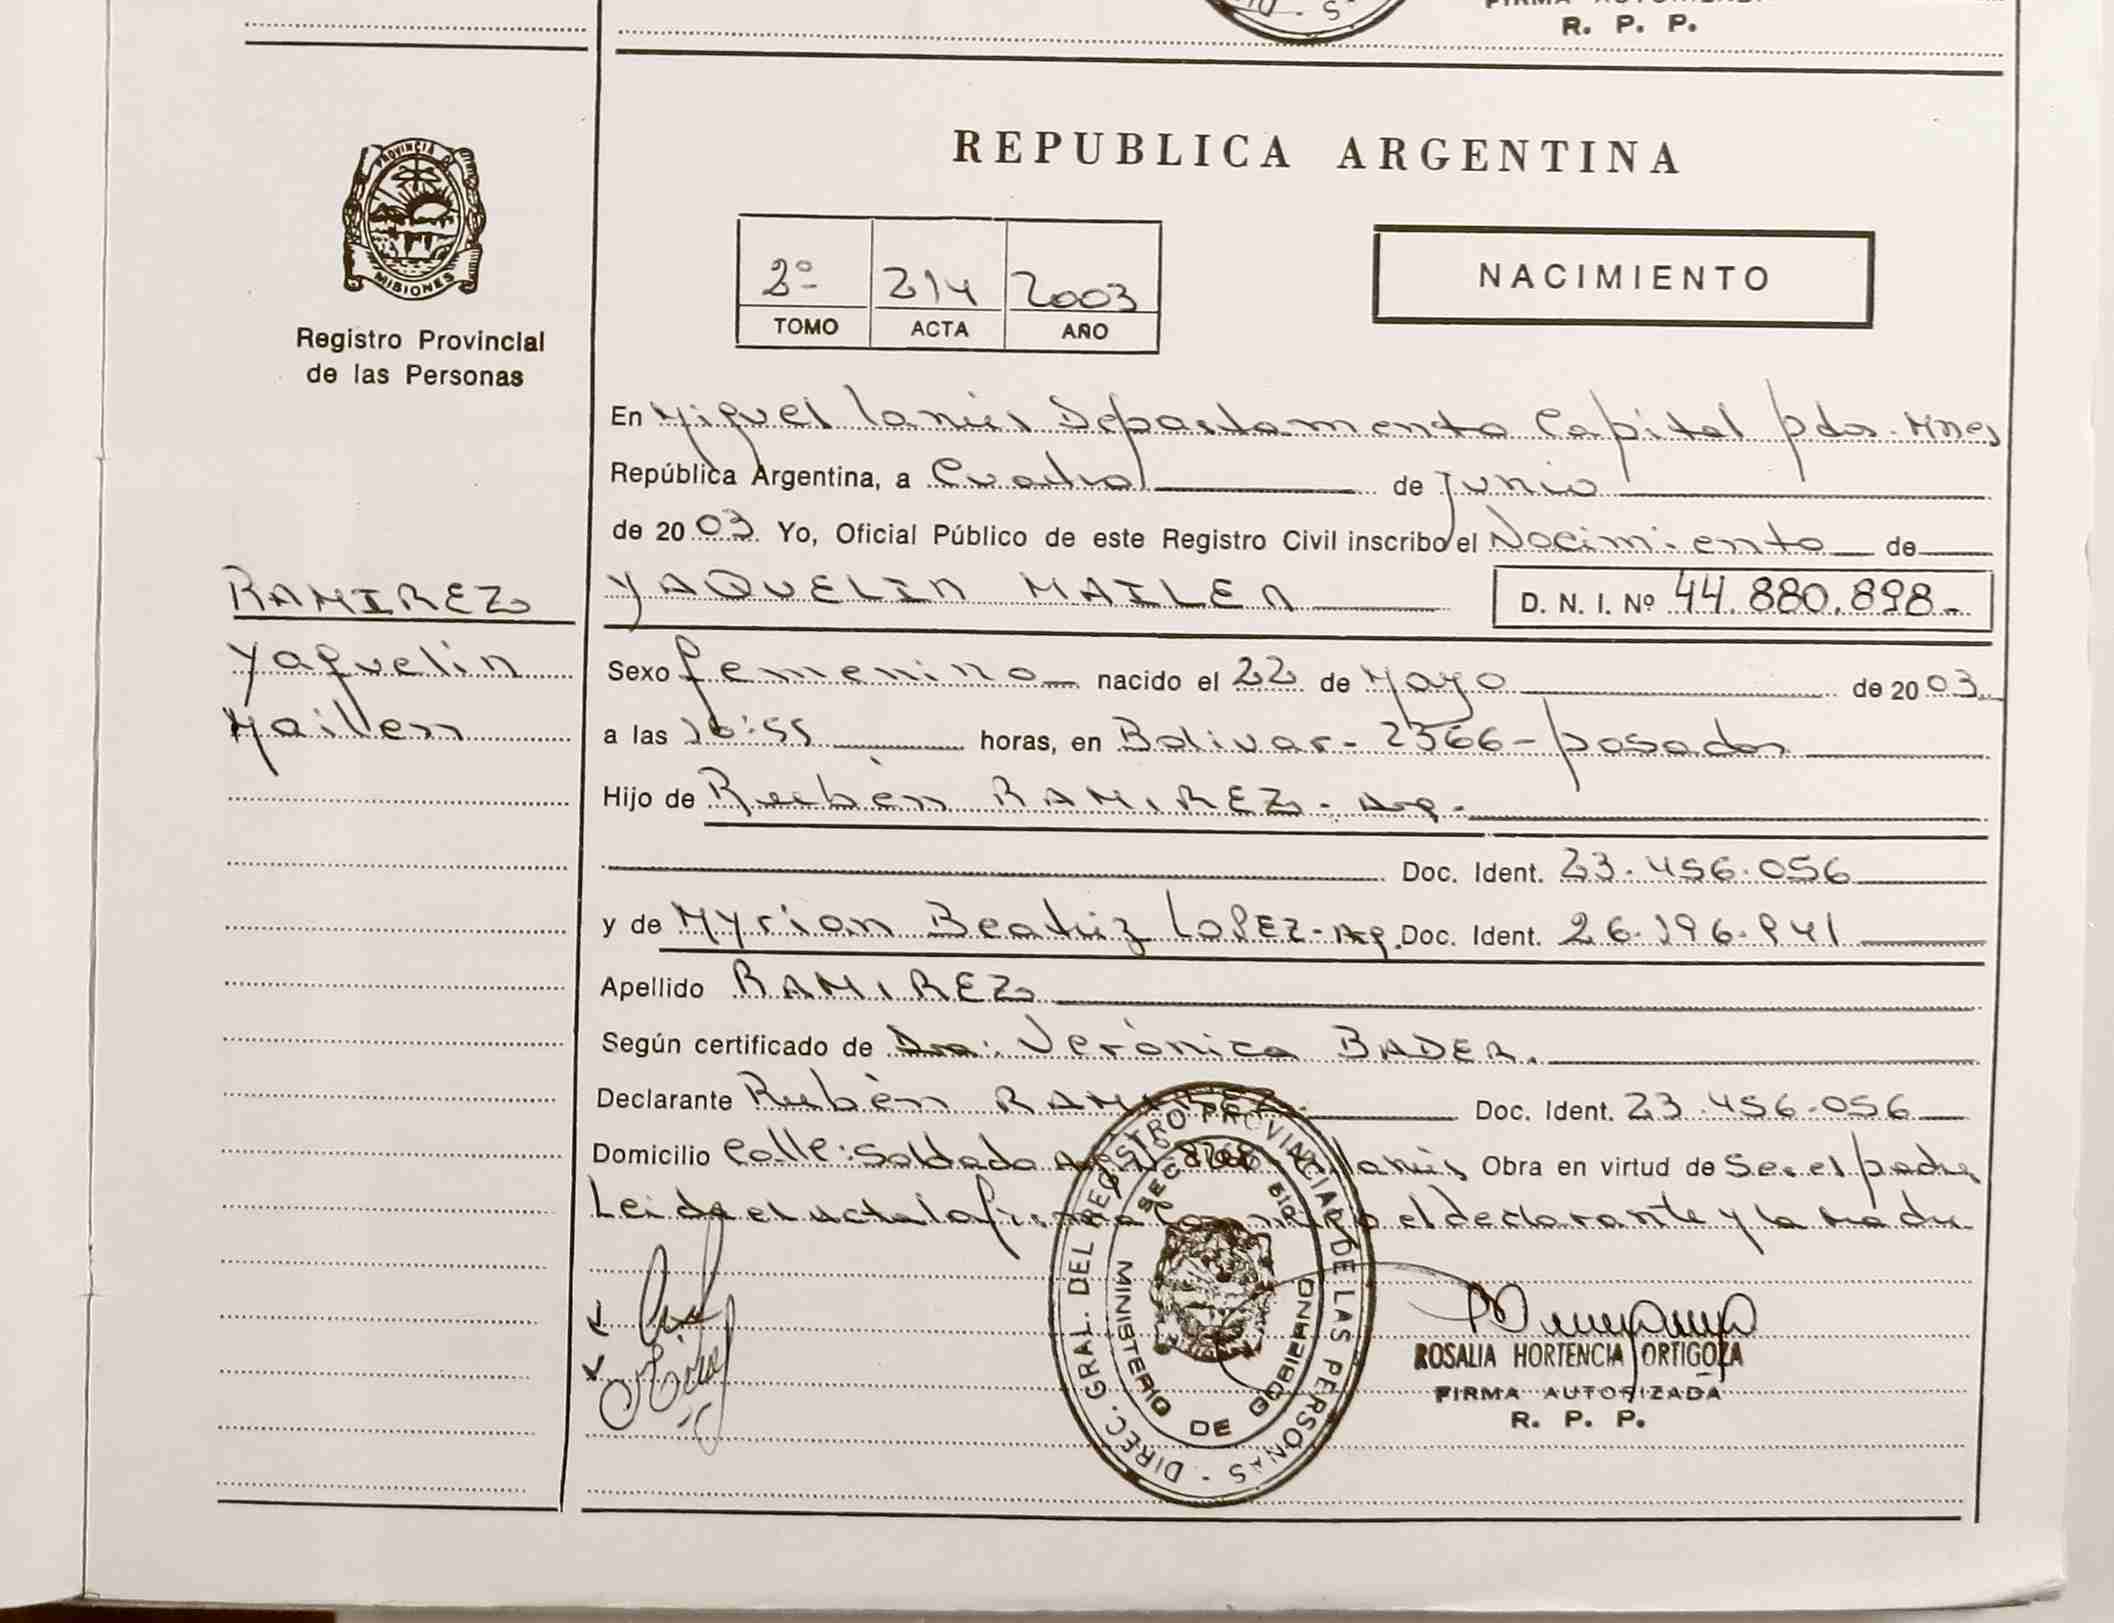 R. P. P.
PROVINCIA DE
MISIONES
Registro Provincial
de las Personas
REPUBLICA ARGENTINA
NACIMIENTO
2º 214 2003
TOMO ACTA AÑO
En Miguel Lanús Departamento Capital pdas. Mnes
República Argentina, a Cuatro de Junio
de 2003 Yo, Oficial Público de este Registro Civil inscribo el Nacimiento de
RAMIREZ
Yaquelin
Mailen
YAQUELIN MAILEN D. N. I. Nº 44.880.898-
Sexo femenino nacido el 22 de Mayo de 2003
a las 16:55 horas, en Bolivar - 2366 - posadas
Hijo de Rubèn RAMIREZ - Arg.
Doc. Ident. 23.456.056
y de Myrian Beatriz LOPEZ - Arg. Doc. Ident. 26.196.941
Apellido RAMIREZ
Según certificado de Dra. Verónica BADER.
Declarante Rubèn RAMIREZ Doc. Ident. 23.456.056
Domicilio Calle: Soldado Lanús Obra en virtud de Ser el padre
Leida el acta la firma conmigo el declarante y la madre
DIREC. GRAL. DEL REGISTRO PROVINCIAL DE LAS PERSONAS
MINISTERIO DE GOBIERNO
ROSALIA HORTENCIA ORTIGOZA
FIRMA AUTORIZADA
R. P. P.